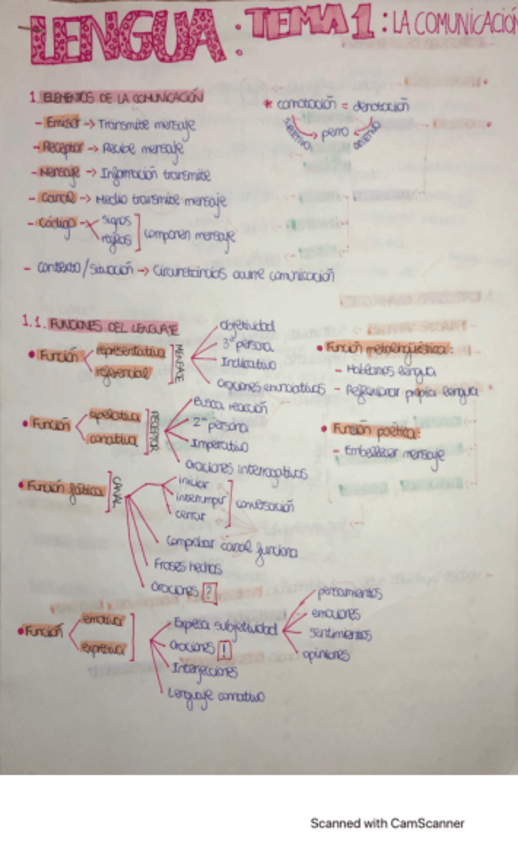 LENGUA: TEMA 1: LA COMUNICACIÓN
1. ELEMENTOS DE LA COMUNICACIÓN
- Emisor → Transmite mensaje
- Receptor → Recibe mensaje
- Mensaje → Información transmite
- Canal → Medio transmite mensaje
- Código signos
reglas
componen mensaje
- Contexto/Situación → Circunstancias ocurre comunicación
* connotación = denotación
SUBJETIVO → perro ← OBJETIVO
1.1. FUNCIONES DEL LENGUAJE
• Función representativa
referencial
MENSAJE
objetividad
3ª persona
Indicativo
Oraciones enunciativas
• Función apelativa
conativa
RECEPTOR
Busca reacción
2ª persona
Imperativo
Oraciones interrogativas
• Función fática
CANAL
iniciar
interrumpir
cerrar
conversación
Comprobar canal funciona
Frases hechas
Oraciones ?
• Función emotiva
expresiva
Expresa subjetividad
Oraciones !
Interjecciones
Lenguaje connativo
pensamientos
emociones
sentimientos
opiniones
• Función metalingüística:
- Hablamos lengua
- Reflexionar propia lengua
• Función poética:
- Embellecer mensaje
Scanned with CamScanner